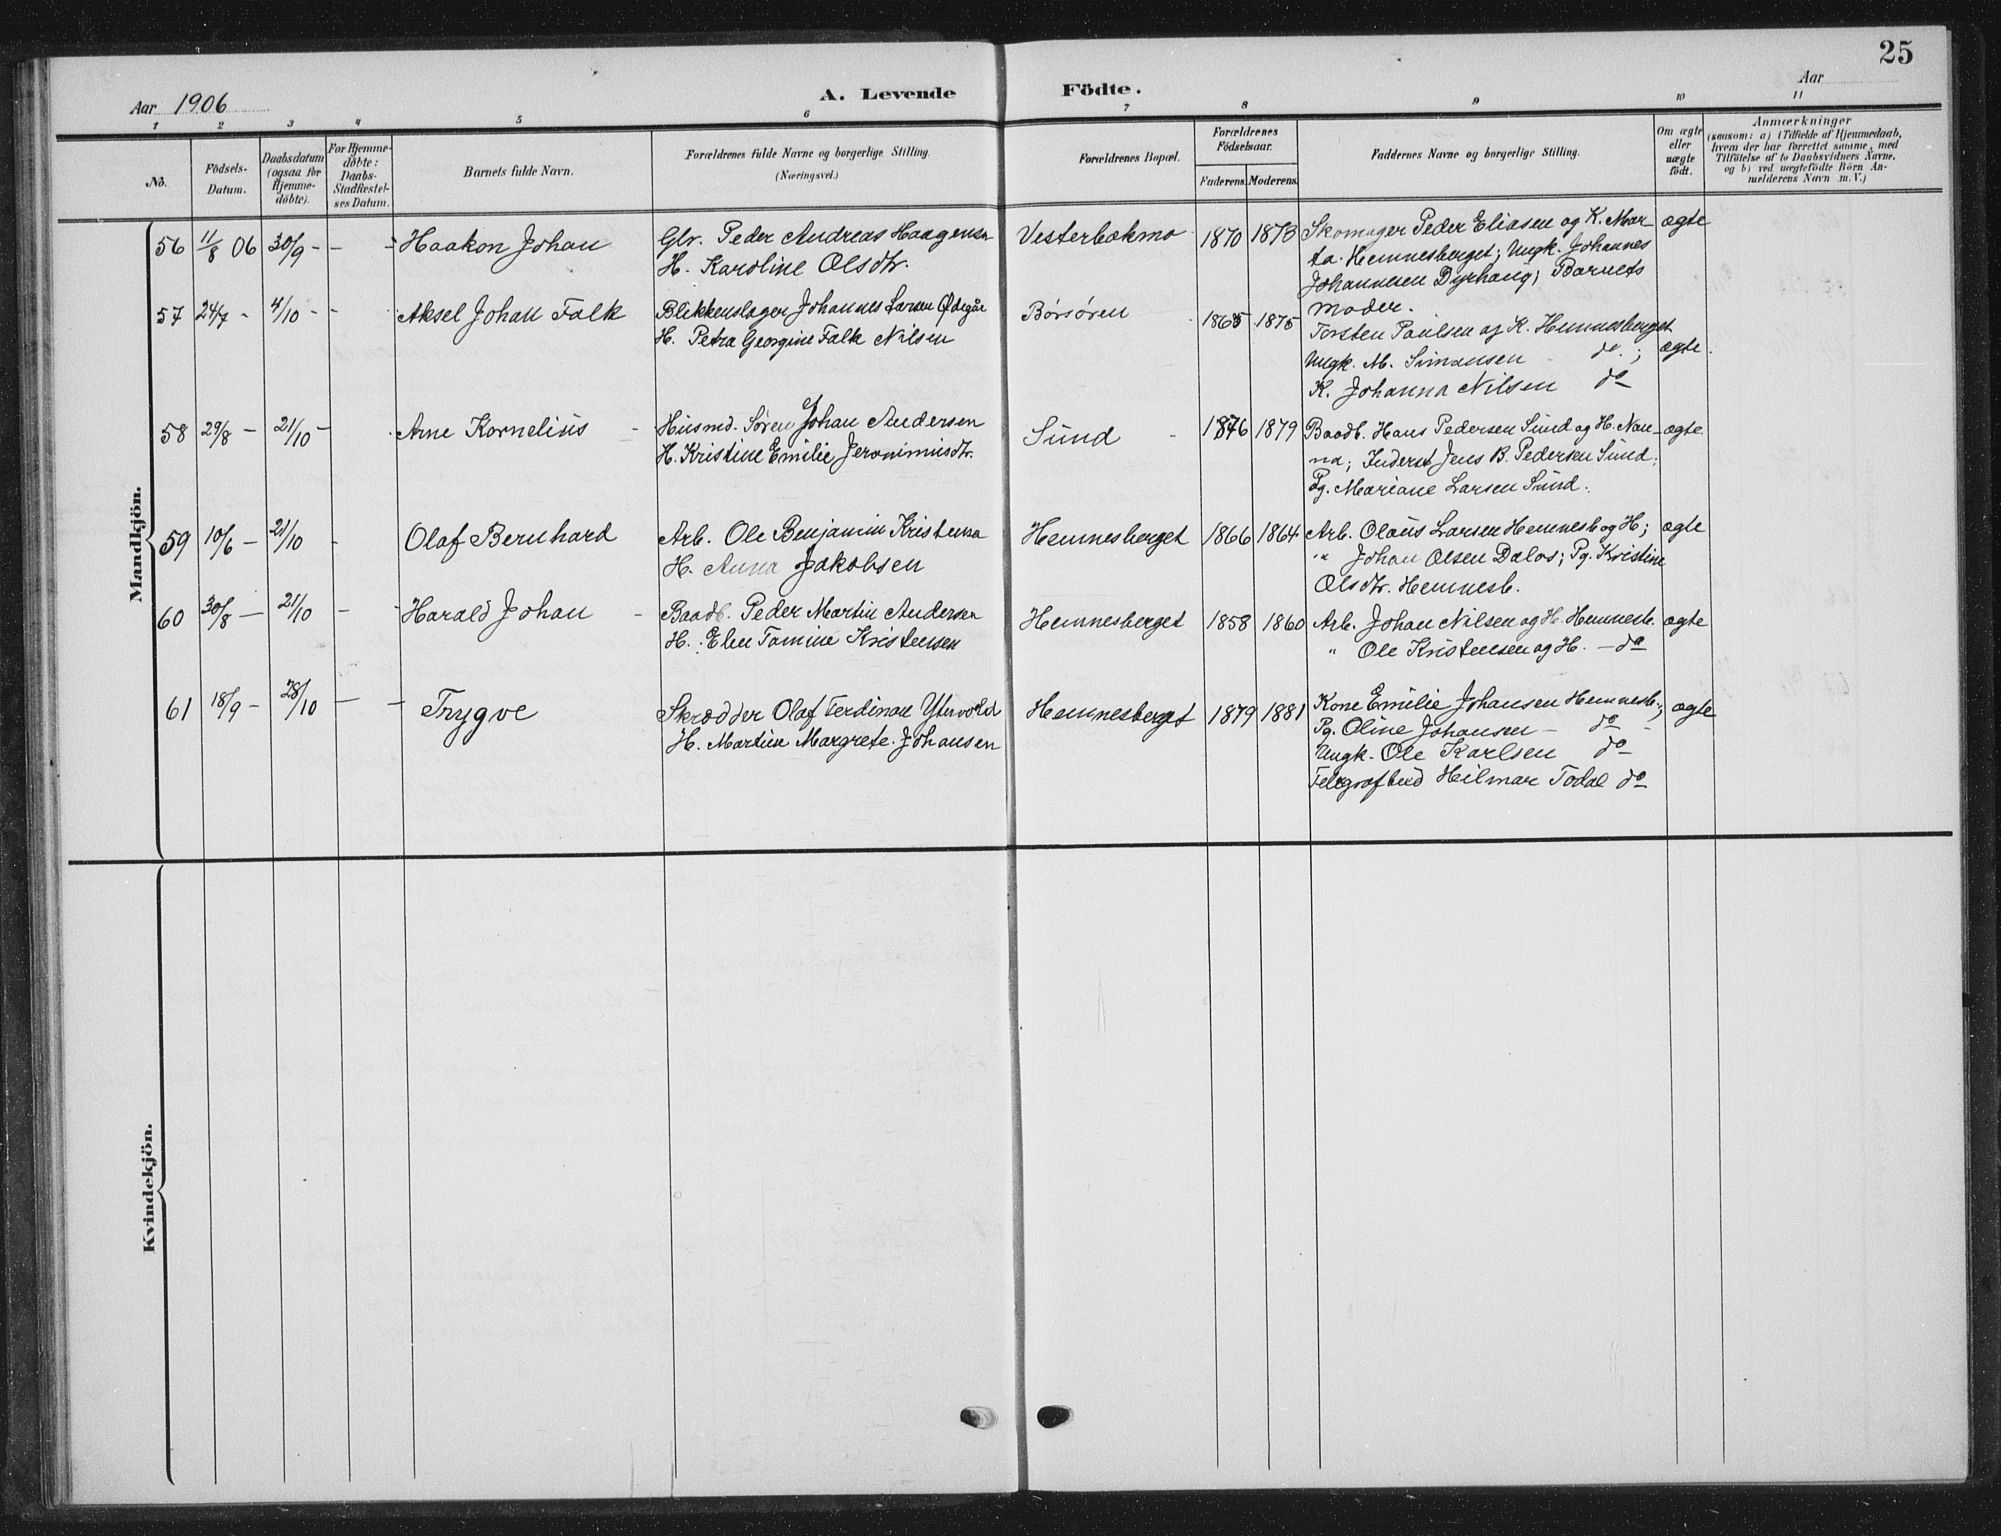 25
Aar 1906
A. Levende Födte.
Aar
1 2 3 4 5 6 7 8 9 10 11
No.
Födsels-
Datum.
Daabsdatum
(ogsaa for
Hjemme-
döbte).
For Hjemme-
döbte:
Daabs-
Stadfæstel-
ses Datum.
Barnets fulde Navn.
Forældrenes fulde Navne og borgerlige Stilling.
(Næringsvei.)
Forældrenes Bopæl.
Forældrenes
Födselsaar.
Faderens. Moderens.
Faddernes Navne og borgerlige Stilling.
Om ægte
eller
uægte
födt.
Anmærkninger
(saasom: a) i Tilfælde af Hjemmedaab,
hvem der har forrettet samme, med
Tilföielse af to Daabsvidners Navne,
og b) ved uægtefödte Börn An-
melderens Navn m. V.)
Mandkjön.
56 11/8 06 30/9 - - - Haakon Johan
Glr. Peder Andreas Haagensen
H. Karoline Olsdtr.
Vesterbækmo 1870 1873
Skomager Peder Eliasen og K. Mar-
ta. Hemnesberget; Ungk. Johannes
Johannesen Dyrhaug; Barnets
moder.
ægte
57 24/7 - 4/10 - - Aksel Johan Falk
Blikkenslager Johannes Larsen Ødegår
H. Petra Georgine Falk Nilsen
Börsören 1865 1875
Torsten Paulsen og K. Hemnesberget
Ungk. M. Simonsen - do. ;
K. Johanna Nilsen do
ægte.
58 29/8 - 21/10 - Arne Kornelius -
Husmd. Sören Johan Andersen
H. Kristine Emilie Jeronimusdtr.
Sund - 1876 1879
Baadb. Hans Pedersen Sund og H. Nan-
na; Inderst Jens B. Pedersen Sund;
Pg. Mariane Larsen Sund.
ægte.
59 10/6 - 21/10 - Olaf Bernhard
Arb. Ole Benjamin Kristensen
H. Anna Jakobsen
Hemnesberget 1866 1864
Arb. Olaus Larsen Hemnesb. og H;
" Johan Olsen Dalos; Pg. Kristine
Olsdtr. Hemnesb.
ægte
60 30/8 - 21/10 - - Harald Johan -
Baadb. Peder Martin Andersen
H. Elen Tomine Kristensen
Hemnesberget 1858 1860
Arb. Johan Nilsen og H. Hemnesb.
" Ole Kristensen og H. - do
ægte
61 18/9 - 28/10 - - Trygve
Skrædder Olaf Ferdinan Ytervold
H. Martine Margrete Johansen
Hemnesberget 1879 1881
Kone Emilie Johansen Hemnesb.;
Pg. Oline Johansen - do -
Ungk. Ole Karlsen do
Telegrafbud Hilmar Todal do
ægte
Kvindekjön.